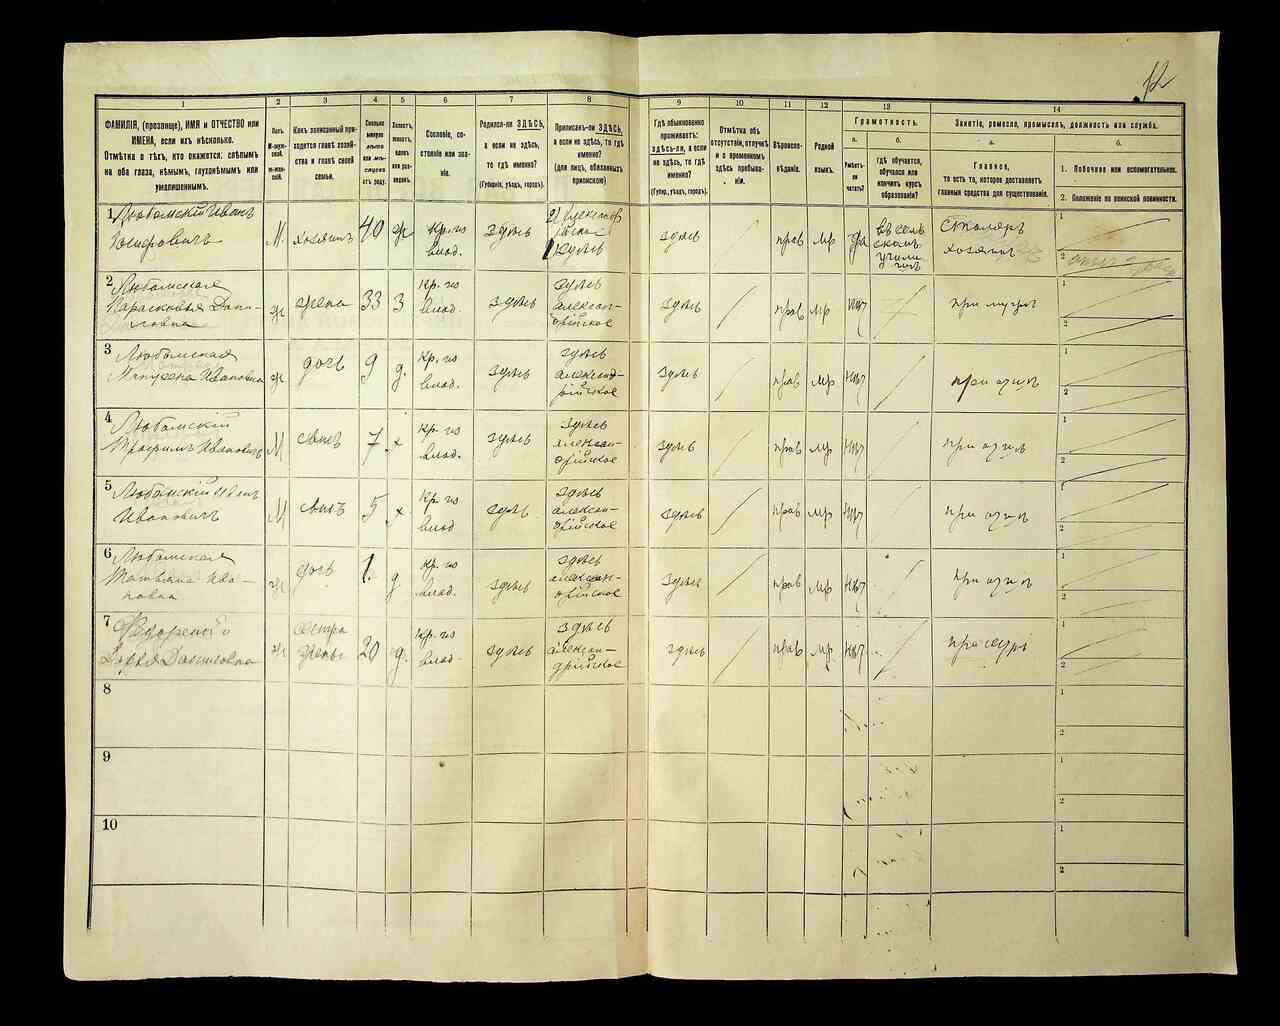 12
1
ФАМИЛІЯ, (прозвище), ИМЯ и ОТЧЕСТВО или
ИМЕНА, если ихъ нѣсколько.
Отмѣтка о тѣхъ, кто окажется: слѣпымъ
на оба глаза, нѣмымъ, глухонѣмымъ или
умалишеннымъ.
2
Полъ.
М-мужской.
Ж-женскій.
3
Какъ записанный приходится главѣ хозяйства и главѣ своей семьи.
4
Сколько минуло лѣтъ или мѣсяцевъ отъ роду.
5
Холостъ, женатъ, вдовъ или разведенъ.
6
Сословіе, состояніе или званіе.
7
Родился-ли ЗДѢСЬ,
а если не здѣсь,
то гдѣ именно?
(Губернія, уѣздъ, городъ).
8
Приписанъ-ли ЗДѢСЬ,
а если не здѣсь, то гдѣ
именно?
(для лицъ, обязанныхъ
припискою)
9
Гдѣ обыкновенно
проживаетъ:
здѣсь-ли, а если
не здѣсь, то гдѣ
именно?
(Губер., уѣздъ, городъ).
10
Отмѣтка объ
отсутствіи, отлучкѣ
и о временномъ
здѣсь пребываніи.
11
Вѣроисповѣданіе.
12
Родной
языкъ.
13
Грамотность.
а.
Умѣетъ-ли
читать?
б.
гдѣ обучается,
обучался или
кончилъ курсъ
образованія?
14
Занятіе, ремесло, промыселъ, должность или служба.
а.
Главное,
то есть то, которое доставляетъ
главныя средства для существованія.
б.
1. Побочное или вспомогательное.
2. Положеніе по воинской повинности.
1 Любомскій Иванъ
Іосифовичъ
М. хозяинъ 40 ж Кр. из влад. здѣсь
здѣсь
здѣсь прав мр да
в сельскомъ училищѣ
Столяръ
хозяинъ
1
2
2 Любомская
Парасковья Даниловна
ж жена 33 з Кр. из влад. здѣсь
здѣсь
александрійское
здѣсь прав мр нѣт при мужѣ
1
2
3 Любомская
Ивановна
ж дочь 9 д. Кр. из влад. здѣсь
здѣсь
александрійское
здѣсь прав мр нѣт при отцѣ
1
2
4 Любомскій
Трофимъ Ивановичъ
М сынъ 7 х Кр. из влад. здѣсь
здѣсь
александрійское
здѣсь прав мр нѣт при отцѣ
1
2
5 Любомскій
Ивановичъ
М сынъ 5 х Кр. из влад здѣсь
здѣсь
александрійское
здѣсь прав мр нѣт при отцѣ
1
2
6 Любомская
Татьяна Ивановна
ж дочь 1. д Кр. из влад. здѣсь
здѣсь
александрійское
здѣсь прав мр нѣт при отцѣ
1
2
7
Даниловна
ж сестра жены 20 д. Кр. из влад. здѣсь
здѣсь
александрійское
здѣсь прав мр нѣт при сестрѣ
1
2
8
1
2
9
1
2
10
1
2